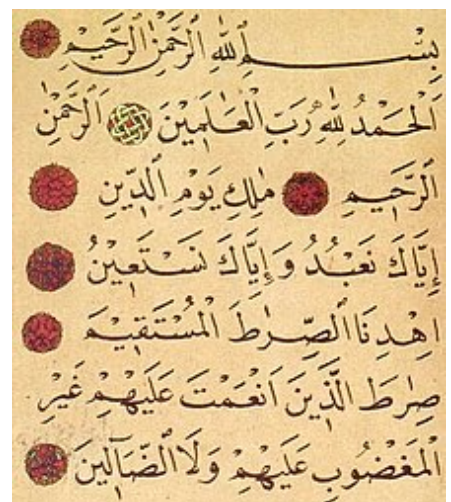 بِسْمِ اللهِ الرَّحْمٰنِ الرَّحِيمِ
اَلْحَمْدُ لِلّٰهِ رَبِّ الْعَالَمِينَ اَلرَّحْمٰنِ
الرَّحِيمِ مٰلِكِ يَوْمِ الدِّينِ
اِيَّاكَ نَعْبُدُ وَاِيَّاكَ نَسْتَعِينُ
اِهْدِنَا الصِّرٰطَ الْمُسْتَقِيمَ
صِرٰطَ الَّذِينَ اَنْعَمْتَ عَلَيْهِمْ غَيْرِ
الْمَغْضُوبِ عَلَيْهِمْ وَلَا الضَّآلِّينَ